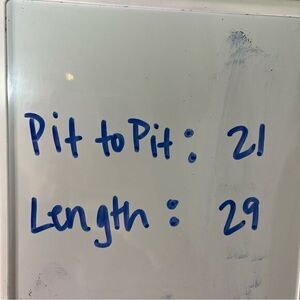 Pit to Pit: 21
Length: 29